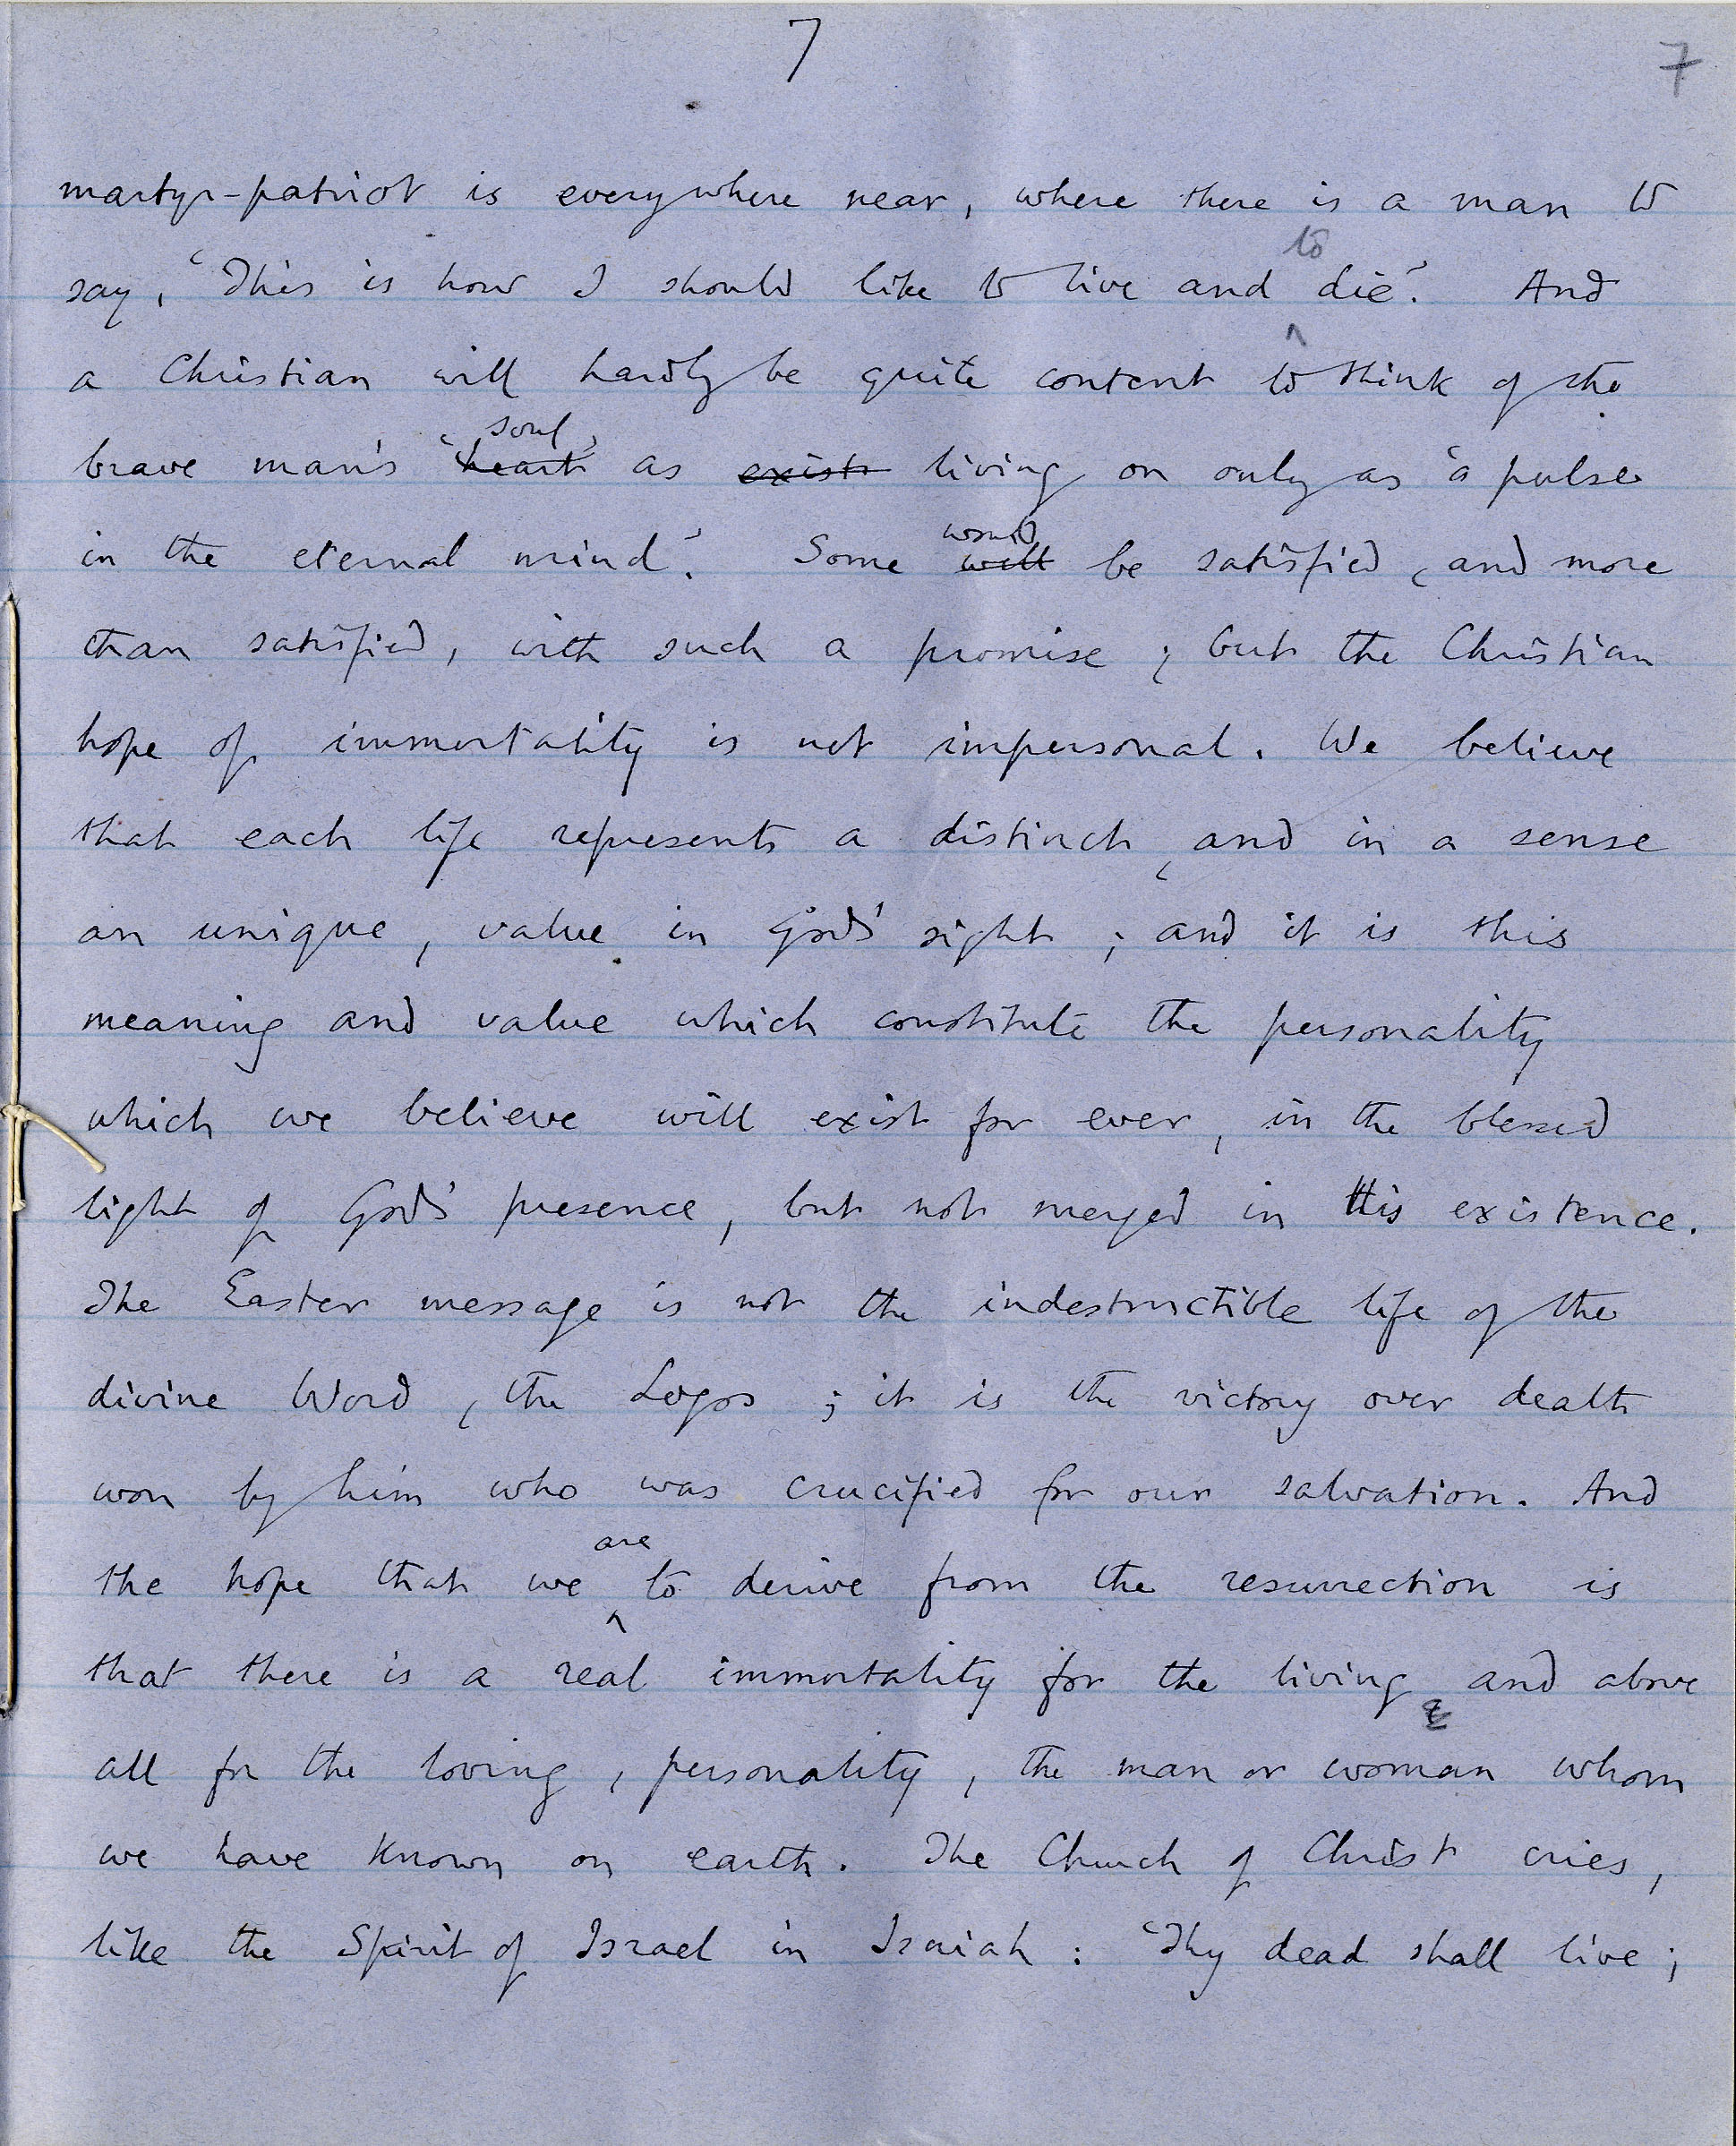 7 7
martyr-patriot is everywhere near, where there is a man to
to
say, 'This is how I should like to live and ^ die'. And
a Christian will hardly be quite content to think of the
soul
brave man's 'heart' as exist living on only as 'a pulse
would
in the eternal mind'. Some will be satisfied, and more
than satisfied, with such a promise; but the Christian
hope of immortality is not impersonal. We believe
that each life represents a distinct, and in a sense
an unique, value in God's sight; and it is this
meaning and value which constitute the personality
which we believe will exist for ever, in the blessed
light of God's presence, but not merged in His existence.
The Easter message is not the indestructible life of the
divine Word, the Logos; it is the victory over death
won by him who was crucified for our salvation. And
are
the hope that we ^ to derive from the resurrection is
that there is a real immortality for the living, and above
all for the loving, personality, the man or woman whom
we have known on earth. The Church of Christ cries,
like the Spirit of Israel in Isaiah: 'Thy dead shall live;